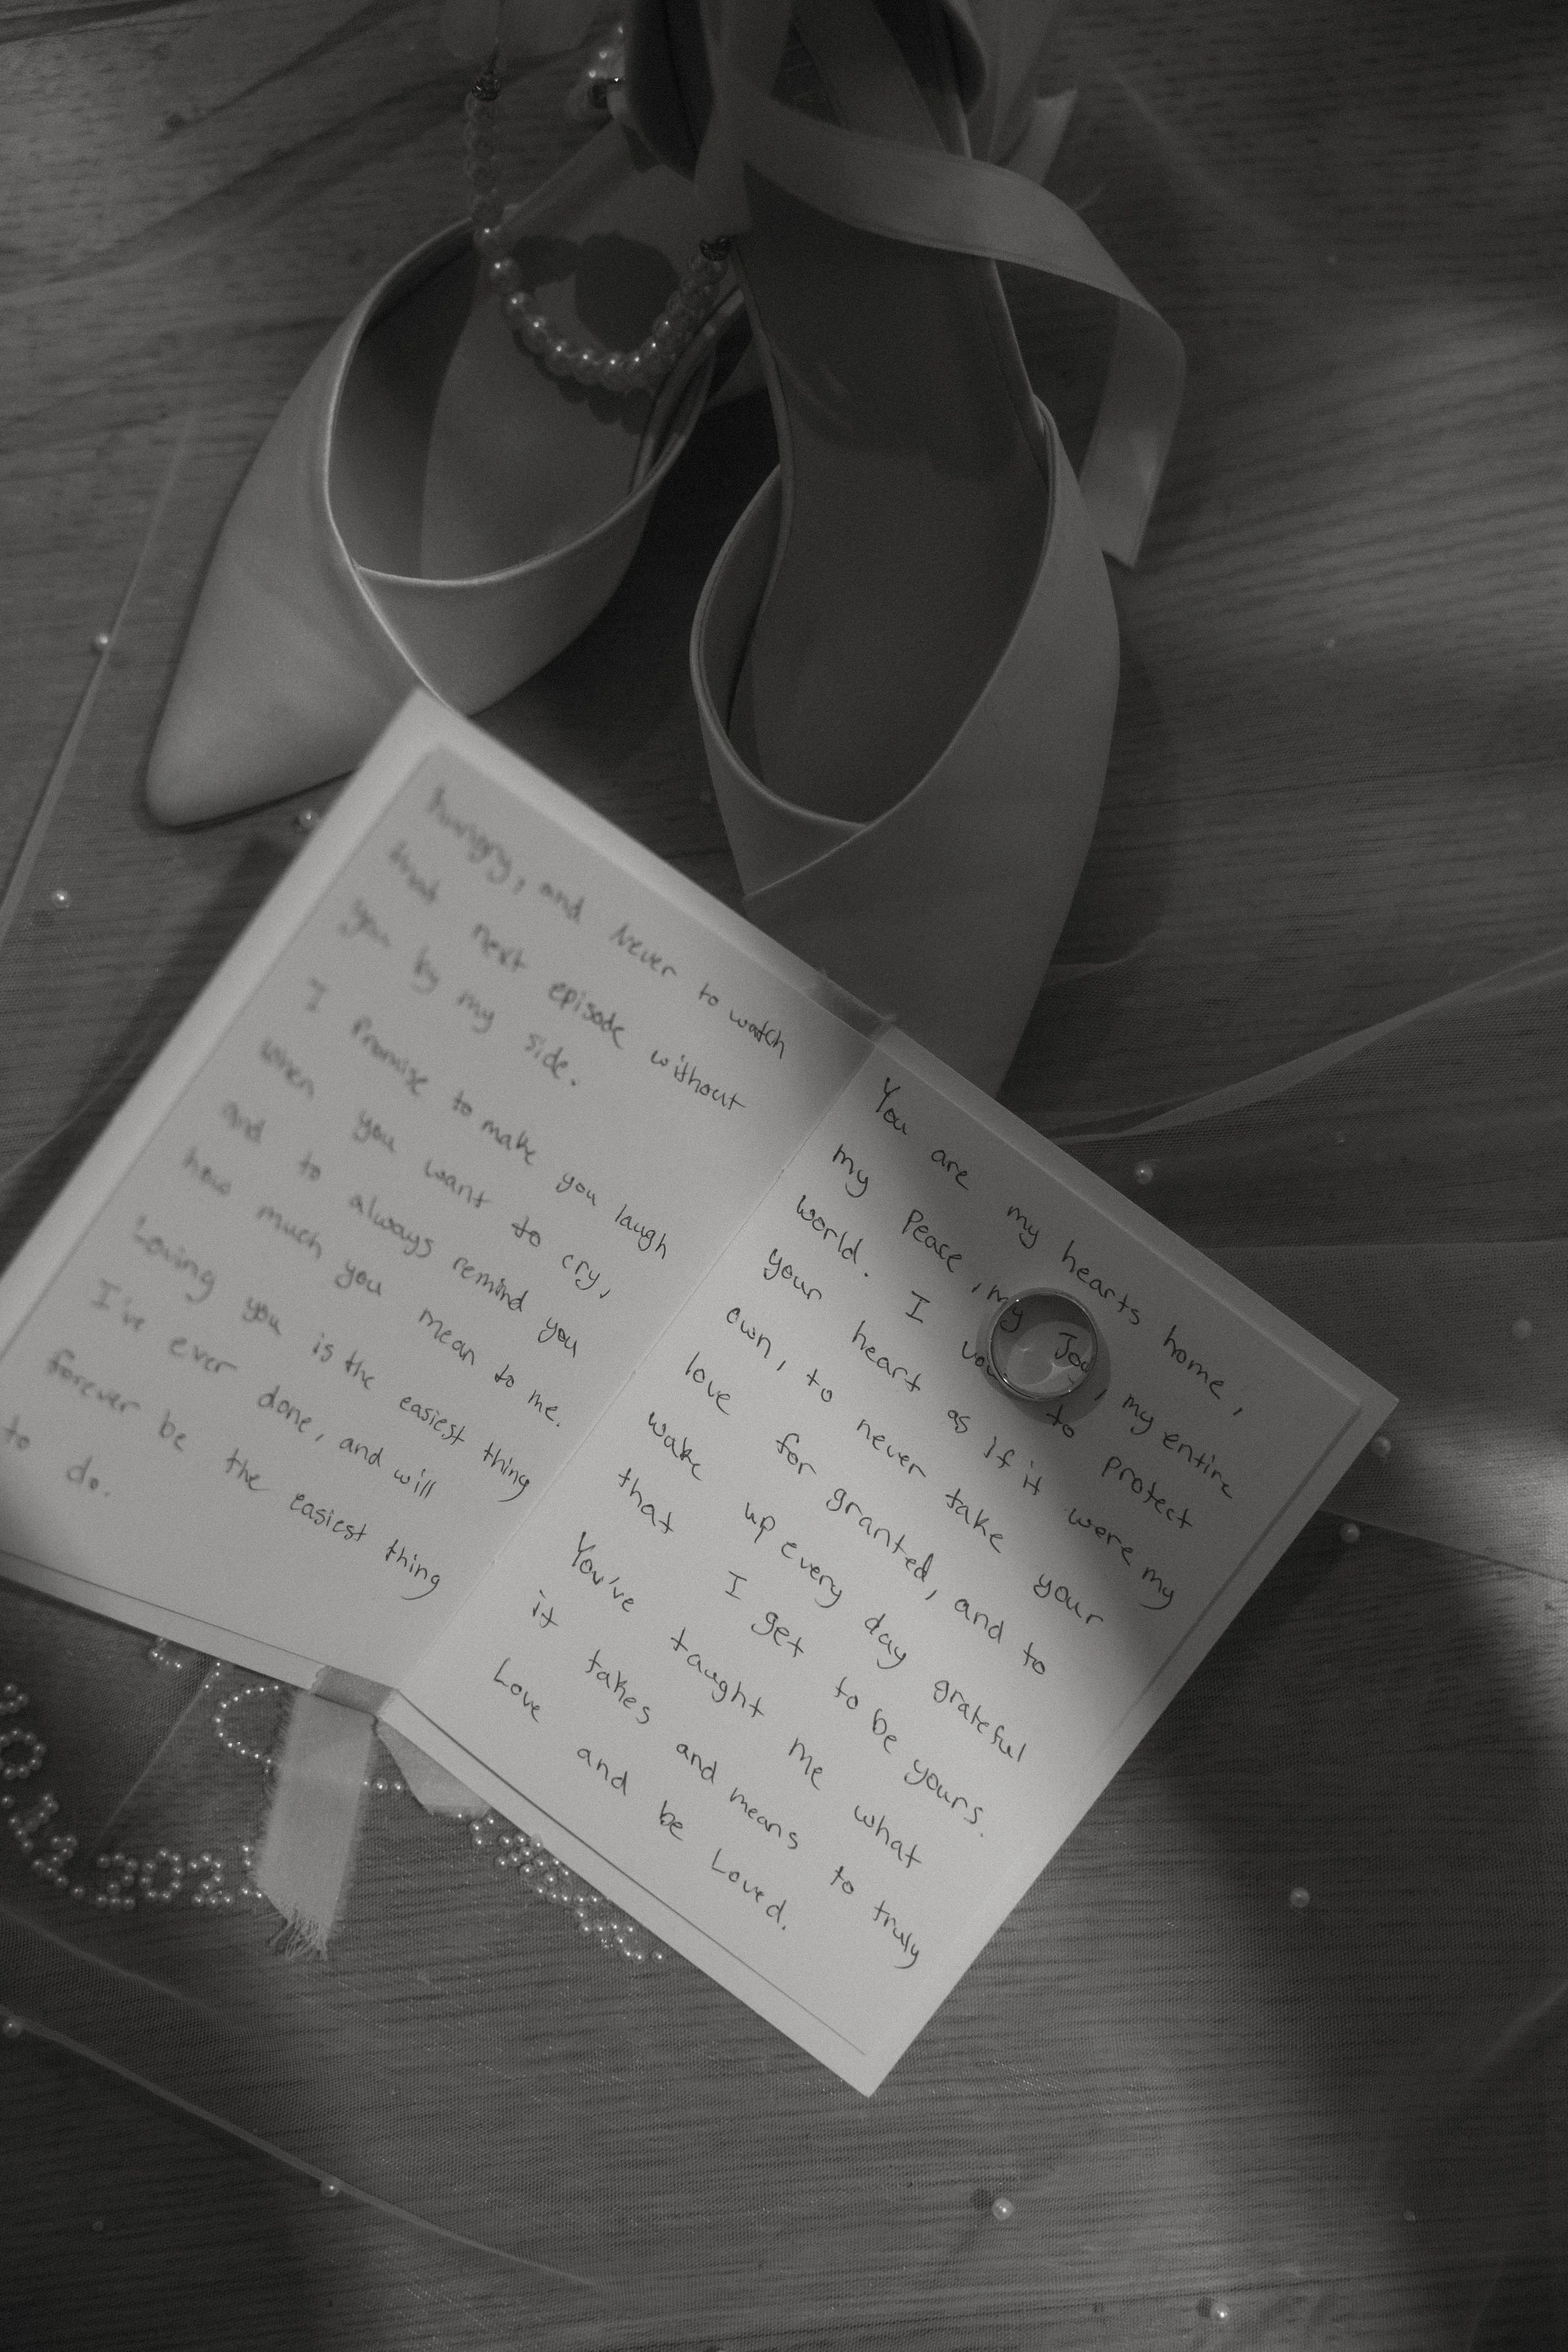 hungry, and never to watch
that next episode without
you by my side.
I Promise to make you laugh
when you want to cry,
and to always remind you
how much you mean to me.
Loving you is the easiest thing
I've ever done, and will
forever be the easiest thing
to do.
You are my hearts home,
my Peace, my Joy, my entire
world. I vow to protect
your heart as if it were my
own, to never take your
love for granted, and to
wake up every day grateful
that I get to be yours.
You've taught me what
it takes and means to truly
Love and be Loved.